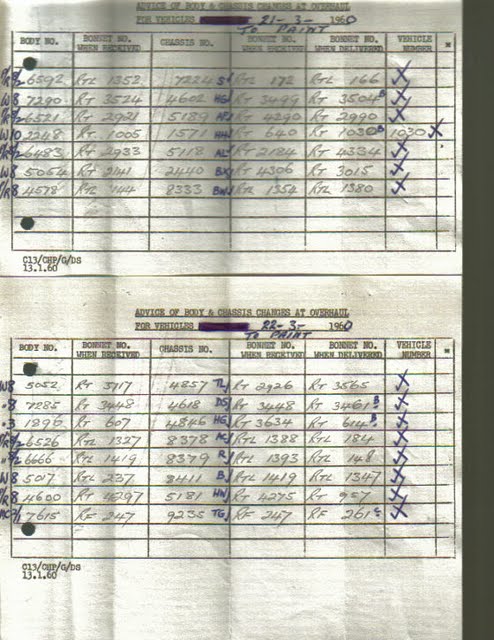 ADVICE OF BODY & CHASSIS CHANGES AT OVERHAUL
FOR VEHICLES 21-3- 1960
TO PAINT
BODY NO. BONNET NO. WHEN RECEIVED CHASSIS NO. BONNET NO. WHEN RECEIVED BONNET NO. WHEN DELIVERED VEHICLE NUMBER
6592 RTL 1352 7224 RTL 172 RTL 166
W8 7290 RT 3524 4602 HG RT 3499 RT 3504 B
6521 RT 2921 5189 RT 4290 RT 2990
W10 2248 RT 1005 1571 HH RT 640 RT 1030 B 1030
6483 RT 2933 5118 AL RT 2184 RT 4334
W8 5054 RT 2141 2440 BX RT 4306 RT 3015
R8 4578 RTL 144 8333 BW RTL 1354 RTL 1380
C13/CHP/G/DS
13.1.60
ADVICE OF BODY & CHASSIS CHANGES AT OVERHAUL
FOR VEHICLES 22-3- 1960
TO PAINT
BODY NO. BONNET NO. WHEN RECEIVED CHASSIS NO. BONNET NO. WHEN RECEIVED BONNET NO. WHEN DELIVERED VEHICLE NUMBER
W8 5052 RT 3717 4857 TL RT 2926 RT 3565
8 7285 RT 3448 4618 DS RT 3448 RT 3461 B
3 1896 RT 607 4846 HG RT 3634 RT 614 B
6526 RTL 1327 8378 RTL 1388 RTL 184
6666 RTL 1419 8379 R RTL 1393 RTL 148
W8 5017 RTL 237 8411 B RTL 1419 RTL 1347
R8 4600 RT 4297 5181 HW RT 4275 RT 957
7615 RF 247 9235 TG RF 247 RF 261
C13/CHP/G/DS
13.1.60